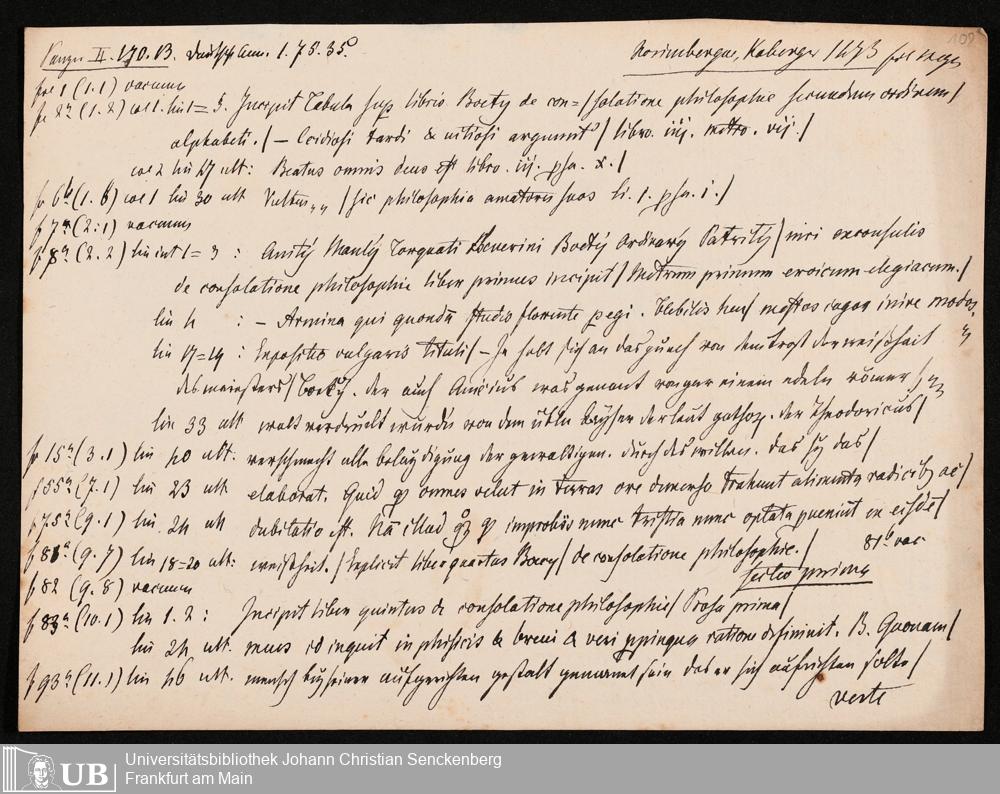 Panzer II. 170. 13. Deutsch Ann. 1. 75. 35.
Norimbergae, Koberger 1473 fol
108
fol 1 (1.1) vacuum
fo 2a (1.2) col 1. lin 1=5. Incipit Tabula sup libris Boetij de con=/solatione philosophie secundum ordinem/
alphabeti. / — Ccidiosi tardi & uitiosi argumt / libro. iiij. metro. vij. /
col 2 lin 47 ult: Beatus omnis deus est libro. iij. psa. x. /
fo 6b (1.6) col 1 lin 30 ult Vultus / sic philosophia amatores suos li. 1. psa. i. /
f 7a (2.1) vacuum
f 8a (2.2) lin int 1=3 : Anitij Manlij Torquati Seuerini Boetij Ordinarij Patritij / viri exconsulis
de consolatione philosophie liber primus incipit / Metrum primum eroicum elegiacum. /
lin 4 : — Armina qui quondā studio florente pegi. Flebilis heu mestos cogor inire modos
lin 17=19 : Expositio vulgaris tituli / — Je hebt sich an das puech von dem trost der weißhait
des maisters / boecij. der auch Anicius was genant von gar einem edeln römer
lin 33 ult walt verdruckt wurde von dem übeln keyser der leut gothoz. der Theodoricus /
fo 15a (3.1) lin 40 ult: verschmecht alle belaydigung der gewaltigen. durch des willen. das sy das /
f 55a (7.1) lin 23 ult elaborat. Quid q omnes velut in terras ore demerso trahunt alimenta radicibz ac /
f 75a (9.1) lin. 24 ult dubitatio est. Nā illud qz q improbis nunc tristia nunc optata pueniūt ex eisdē /
f 81a (9.7) lin 18=20 ult: weißheit. / Explicit liber quartus Boecij / de consolatione philosophie. / 81b vac
f 82 (9.8) vacuum
f 83a (10.1) lin 1. 2 : Incipit liber quintus de consolatione philosophie / Prosa prima /
lin 24 ult. meus id inquit in phisicis & breui & veri ppinqua ratione difiniuit. B. Quonam /
f 93a (11.1) lin 46 ult. mensch bey seiner aufgerichten gestalt gemanet sein das er sich aufrichten solte /
verte
Universitätsbibliothek Johann Christian Senckenberg
Frankfurt am Main
UB